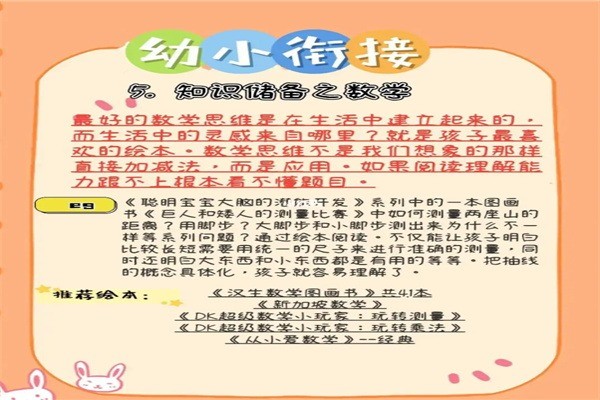 幼小衔接
5。知识储备之数学
最好的数学思维是在生活中建立起来的，
而生活中的灵感来自哪里？就是孩子最喜
欢的绘本。数学思维不是我们想象的那样
直接加减法，而是应用。如果阅读理解能
力跟不上根本看不懂题目。
eg
《聪明宝宝大脑的潜能开发》系列中的一本图画
书《巨人和矮人的测量比赛》中如何测量两座山的
距离？用脚步？大脚步和小脚步测出来为什么不一
样等系列问题？通过绘本阅读。不仅能让孩子明白
比较长短需要用统一的尺子来进行准确的测量，同
时还明白大东西和小东西都是有用的等等。把抽线
的概念具体化，孩子就容易理解了。
推荐绘本：
《汉生数学图画书》共41本
《新加坡数学》
《DK超级数学小玩家：玩转测量》
《DK超级数学小玩家：玩转乘法》
《从小爱数学》--经典